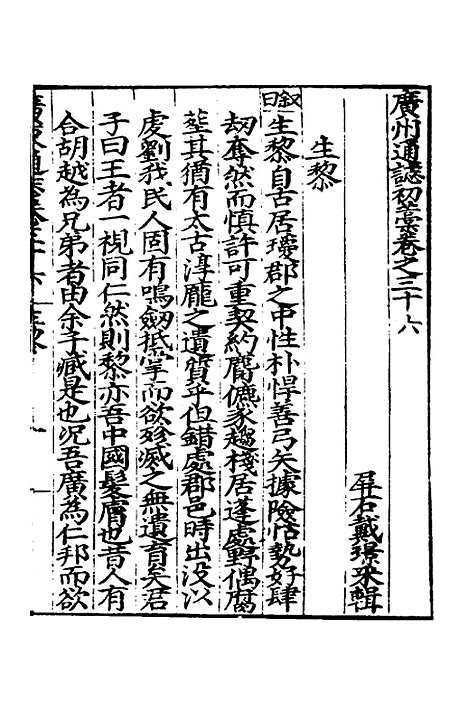 廣州通誌初藁卷之三十六
屏石戴璟采輯
生黎
叙曰生黎自古居瓊郡之中性朴悍善弓矢據險怙勢好肆
刼奪然而慎許可重契約鴈儷豕趨棧居蓬處野偶腐
𦵏其猶有太古淳龐之遺質乎但錯處郡邑時出没以
虔劉我民人固有鳴劒抵掌而欲殄滅之無遺育矣君
子曰王者一視同仁然則黎亦吾中國髮膚也昔人有
合胡越為兄弟者由余子臧是也况吾廣為仁邦而欲